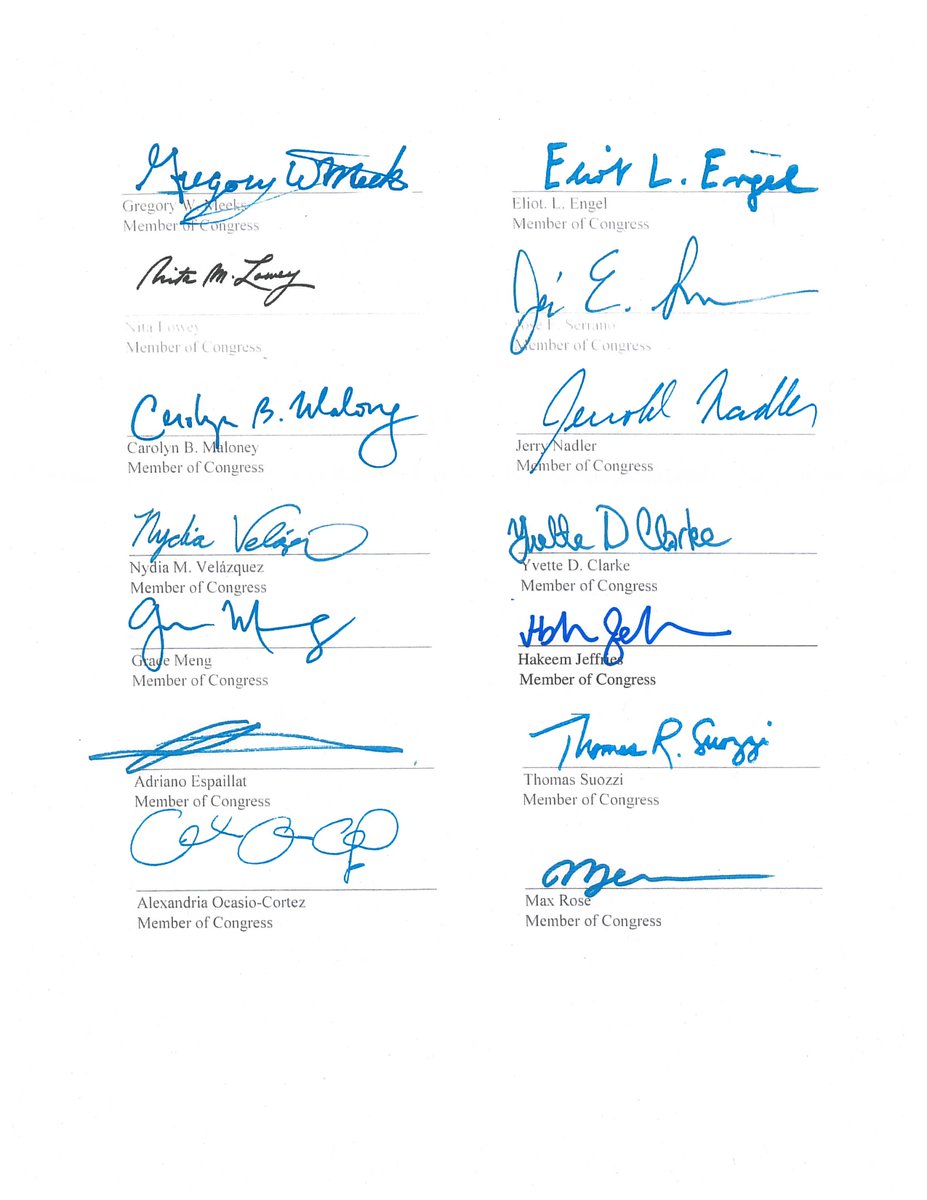 Gregory W Meeks
Gregory W. Meeks
Member of Congress
Eliot L. Engel
Eliot. L. Engel
Member of Congress
Nita M. Lowey
Nita Lowey
Member of Congress
José E. Serrano
Member of Congress
Carolyn B. Maloney
Carolyn B. Maloney
Member of Congress
Jerrold Nadler
Jerry Nadler
Member of Congress
Nydia Velázquez
Nydia M. Velázquez
Member of Congress
Yvette D Clarke
Yvette D. Clarke
Member of Congress
Grace Meng
Member of Congress
Hakeem Jeffries
Member of Congress
Adriano Espaillat
Member of Congress
Thomas R. Suozzi
Thomas Suozzi
Member of Congress
Alexandria Ocasio-Cortez
Member of Congress
Max Rose
Member of Congress